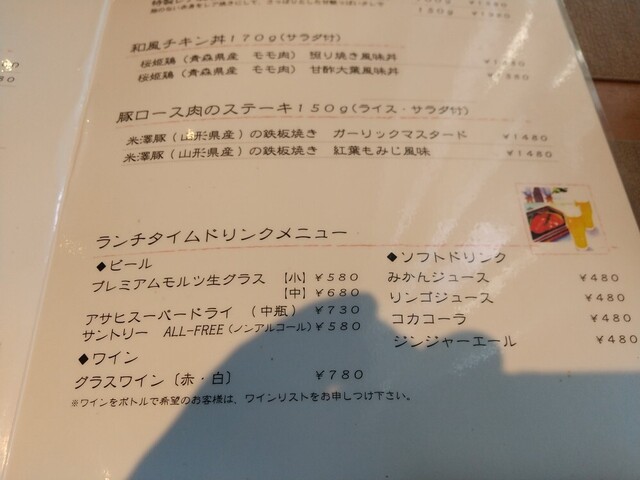 和風チキン丼１７０ｇ(サラダ付)
桜姫鶏（青森県産　モモ肉）照り焼き風味丼
桜姫鶏（青森県産　モモ肉）甘酢大葉風味丼
豚ロース肉のステーキ１５０ｇ(ライス・サラダ付)
米澤豚（山形県産）の鉄板焼き　ガーリックマスタード　￥1480
米澤豚（山形県産）の鉄板焼き　紅葉もみじ風味　￥1480
ランチタイムドリンクメニュー
◆ビール
プレミアムモルツ生グラス　【小】￥５８０
【中】￥６８０
アサヒスーパードライ　（中瓶）　￥７３０
サントリー　ALL-FREE（ノンアルコール）￥５８０
◆ワイン
グラスワイン〔赤・白〕　￥７８０
※ワインをボトルで希望のお客様は、ワインリストをお申しつけ下さい。
◆ソフトドリンク
みかんジュース　￥480
リンゴジュース　￥480
コカコーラ　￥480
ジンジャーエール　￥480